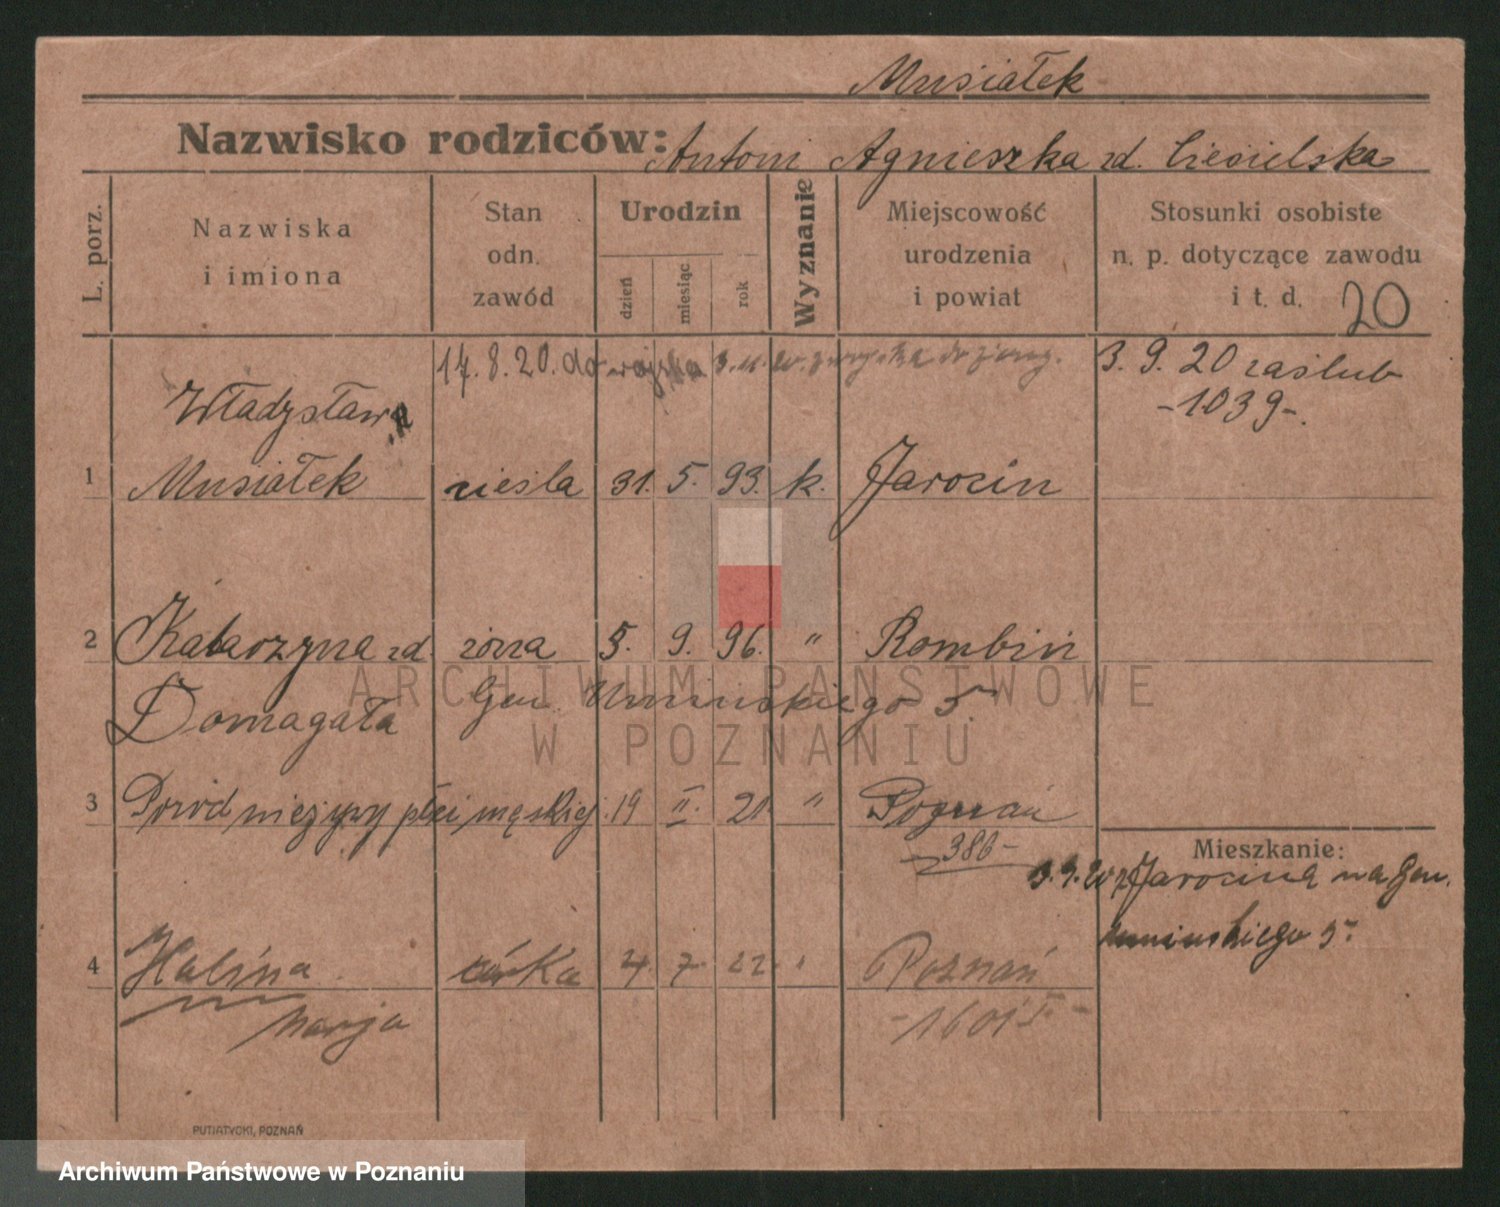 Musiałek
Nazwisko rodziców: Antoni Agnieszka zd. Ciesielska
L. porz.
Nazwiska
i imiona
Stan
odn.
zawód
Urodzin
dzień
miesiąc
rok
Wyznanie
Miejscowość
urodzenia
i powiat
Stosunki osobiste
n. p. dotyczące zawodu
i t. d. 20
17.8.20. do wojska
3. 9. 20 zaślub
-1039-.
Władysław
1 Musiałek cieśla 31. 5. 93. k. Jarocin
2 Katarzyna zd żona 5. 9. 96. " Rombiń
Domagała Gen. Umińskiego 5.
3 Poród nieżywy płci męskiej 19 II. 21. " Poznań
-386-
Mieszkanie:
3.9.20 z Jarocina na Gen.
Umińskiego 5.
4 Halina córka 4. 7. 22. " Poznań
Marja
-1601
PUTIATYCKI, POZNAŃ
ARCHIWUM PAŃSTWOWE
W POZNANIU
Archiwum Państwowe w Poznaniu